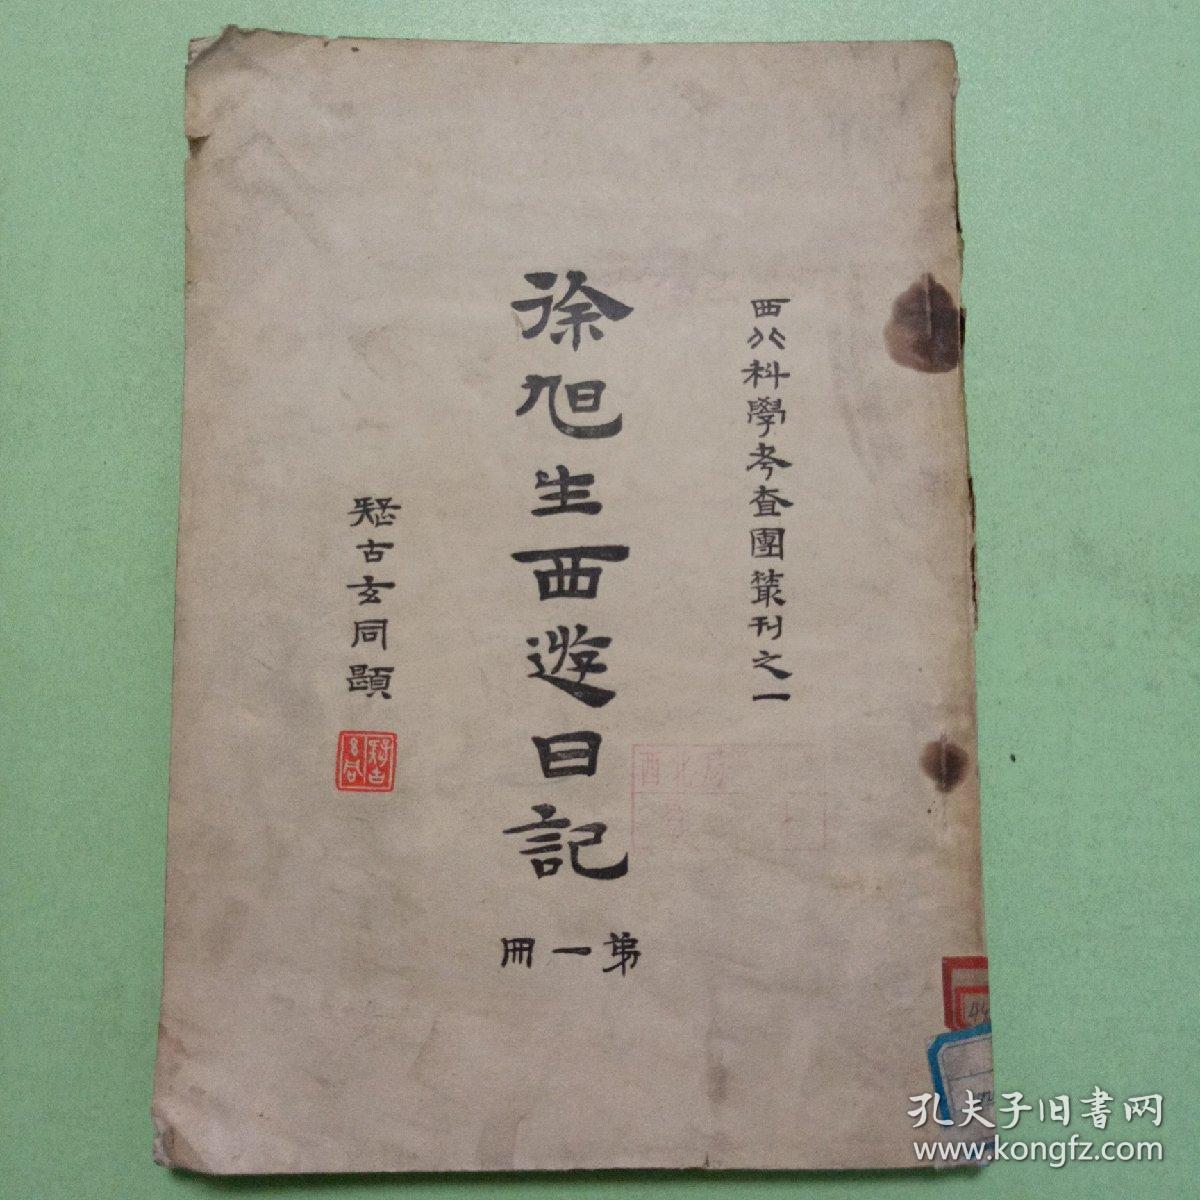 西北科學考查團叢刊之一
徐旭生西遊日記
第一冊
疑古玄同題
西北局
44
孔夫子旧书网
www.kongfz.com